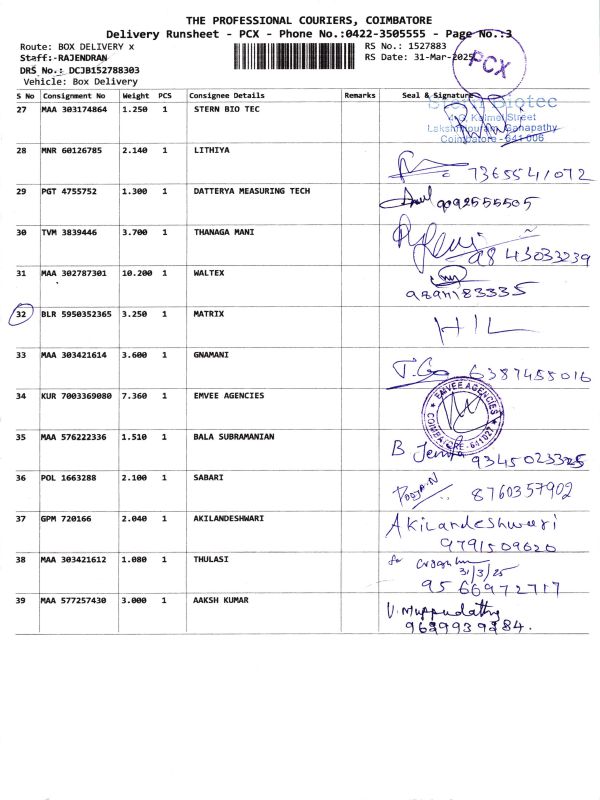 THE PROFESSIONAL COURIERS, COIMBATORE
Delivery Runsheet - PCX - Phone No.:0422-3505555 - Page No.:3
Route: BOX DELIVERY x
RS No.: 1527883
Staff:-RAJENDRAN
RS Date: 31-Mar-2025
DRS No.: DCJB152788303
Vehicle: Box Delivery
PCX
S No Consignment No Weight PCS Consignee Details Remarks Seal & Signature
27 MAA 303174864 1.250 1 STERN BIO TEC
Stern Biotec
Street
Lakshmipuram, Ganapathy
Coimbatore - 641 006
28 MNR 60126785 2.140 1 LITHIYA
7365541072
29 PGT 4755752 1.300 1 DATTERYA MEASURING TECH
9092555505
30 TVM 3839446 3.700 1 THANAGA MANI
9843033239
31 MAA 302787301 10.200 1 WALTEX
32 BLR 5950352365 3.250 1 MATRIX
HIL
33 MAA 303421614 3.600 1 GNAMANI
6387455016
34 KUR 7003369080 7.360 1 EMVEE AGENCIES
EMVEE AGENCIES
COIMBATORE - 641027
35 MAA 576222336 1.510 1 BALA SUBRAMANIAN
B
36 POL 1663288 2.100 1 SABARI
8760357902
37 GPM 720166 2.040 1 AKILANDESHWARI
Akilandeshwari
9791509620
38 MAA 303421612 1.080 1 THULASI
for
31/3/25
9566972717
39 MAA 577257430 3.000 1 AAKSH KUMAR
V. Muppudathy
9629939284.